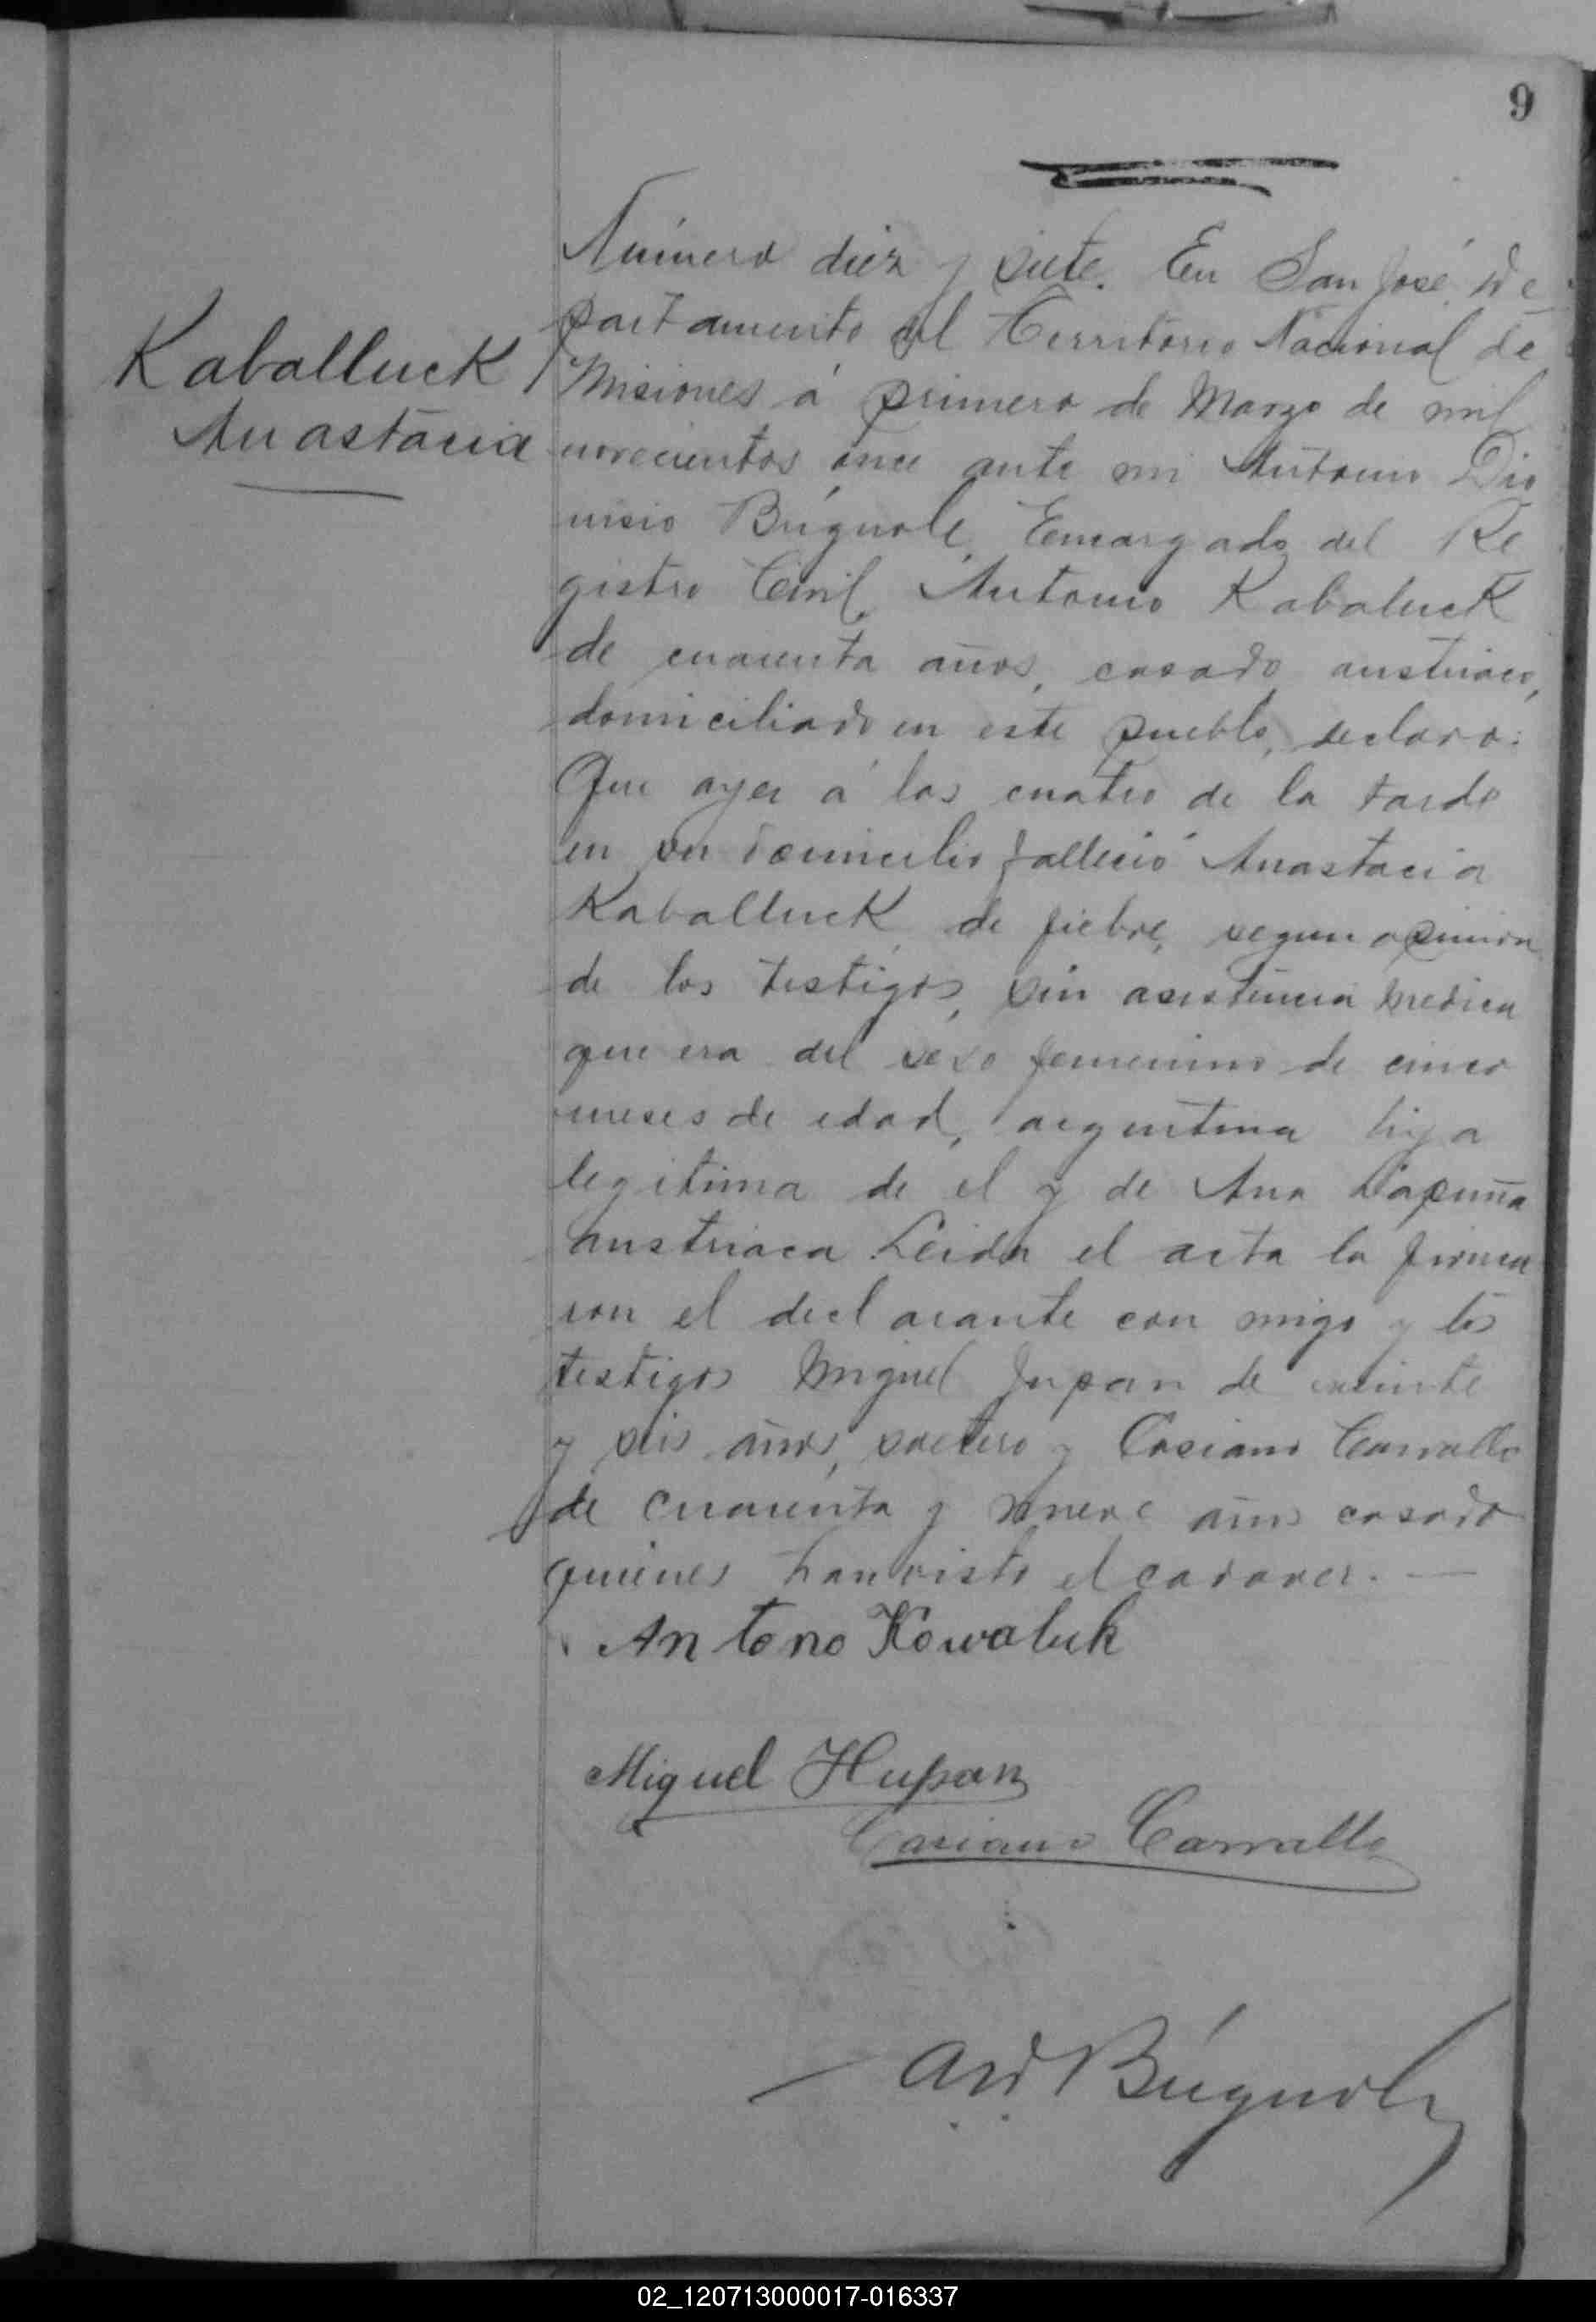 9
Número diez y siete. En San José De
partamento del Territorio Nacional de
Kaballuck
Misiones á primero de Marzo de mil
Anastacia
novecientos once ante mi Antonio Dio
nisio Brignole, Encargado del Re
gistro Civil, Antonio Kabaluck
de cuarenta años, casado austriaco,
domiciliado en este pueblo, declaró:
Que ayer á las cuatro de la tarde
en su domicilio falleció Anastacia
Kaballuck, de fiebre, segun opinion
de los testigos, sin asistencia medica
que era del sexo femenino de cinco
meses de edad, argentina hija
legitima de el y de Ana
austriaca. Leida el acta la firma
ron el declarante con migo y los
testigos Miguel Jupan de veinte
y seis años, soltero y Casiano Carvallo
de cuarenta y nueve años casado
quienes han visto el cadaver. —
Antono Kowaluk
Miguel Hupan
Casiano Carvallo
AD Brignole
02_120713000017-016337